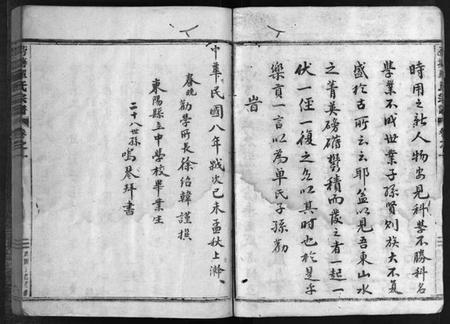 時用之新人物出見科學不勝科名
學業不喊世業子孫賢則族大不夏
盛於古所云云耶益以見吾東山水
之菁英磅礡欝積而蔵之者一起一
伏一徃一復之各以其時也於是乎
樂貢一言以為单氏子孫勸
旹
中華民國八年歲次己未孟秋上澣
春晚勸學所長徐紹韓謹撰
東陽縣立中學校畢業生
二十八世孫鳴琴拜書